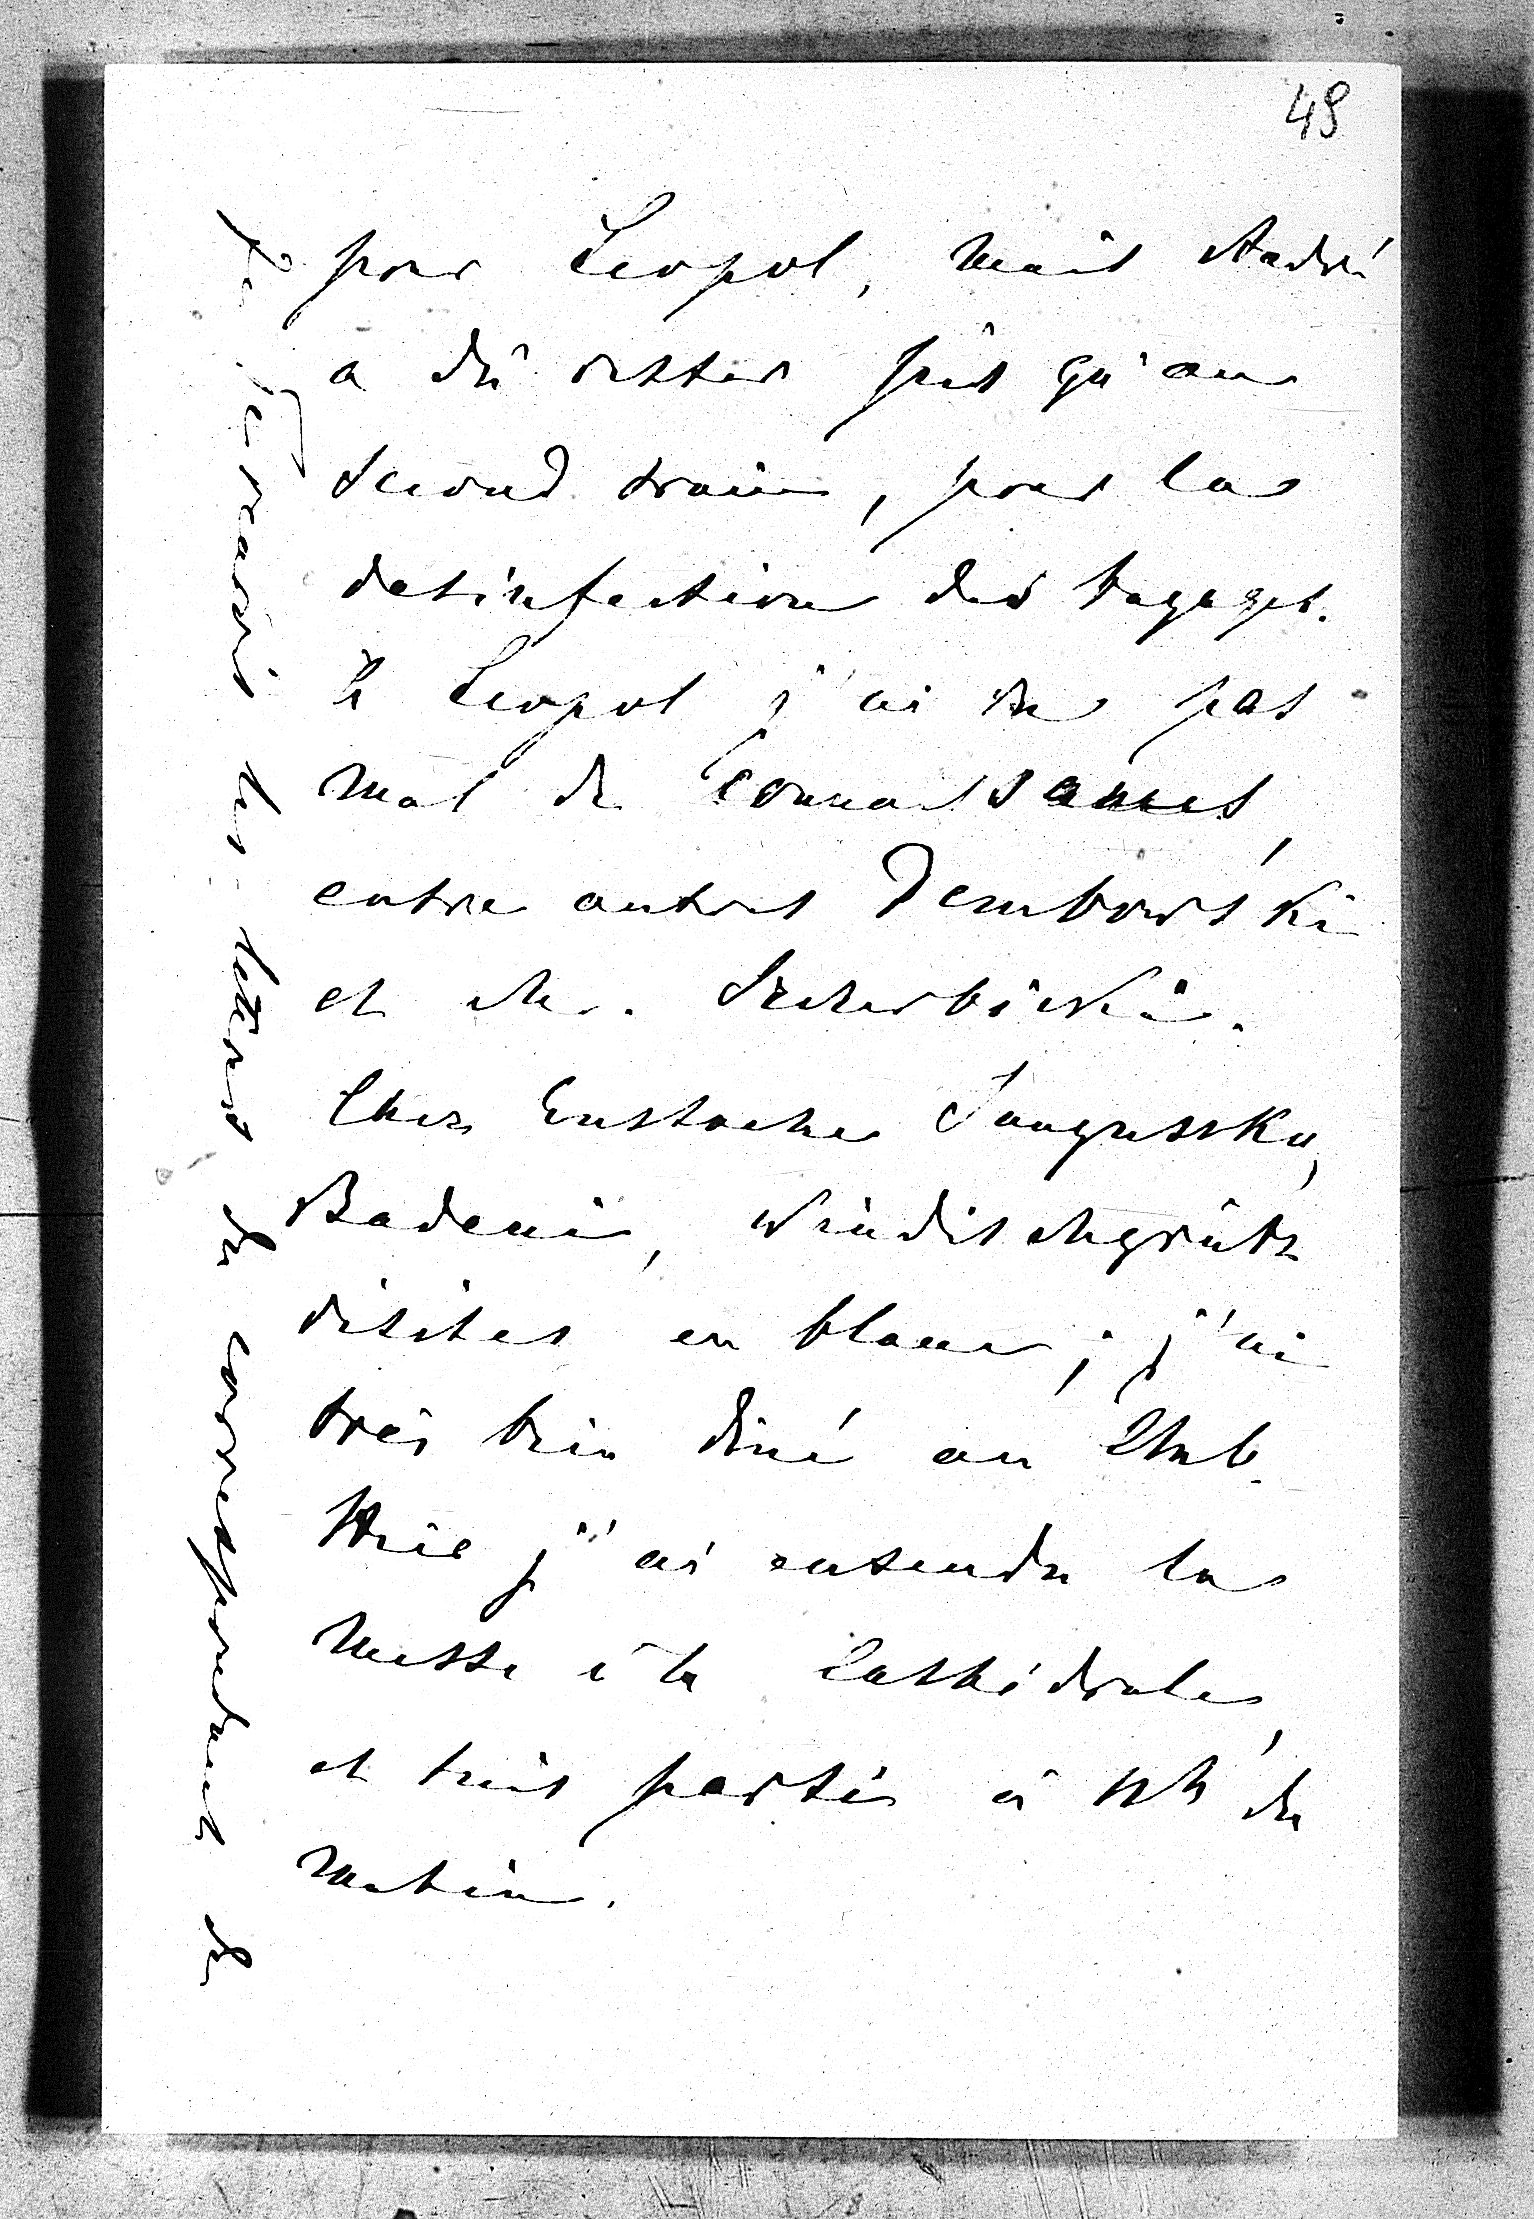 49
pour Leopol, mais André
a dû rester jusqu'au
second train, pour la
desinfection des bagages.
À Leopol j'ai vu pas
mal de connaissances,
entre autres Dembowski
et Mr. Szczerbicki.
Chez Eustache Sanguszko,
Badeni, Windischgrätz
visites en blanc; j'ai
très bien diné au Club.
Hier j'ai entendu la
messe à la cathédrale,
et suis parti à h du
matin.
Je ferrais les lettres du correspondant de